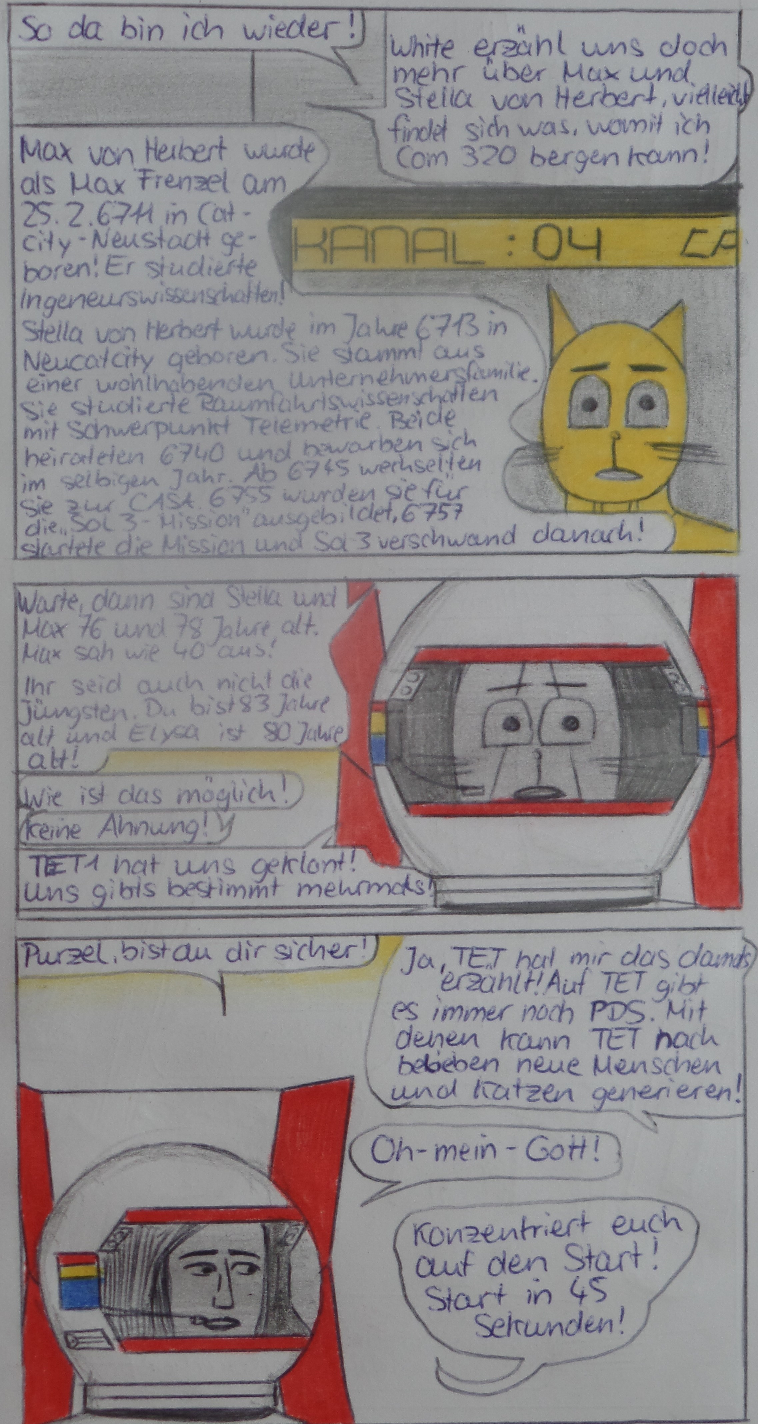 So da bin ich wieder!
White erzähl uns doch
mehr über Max und
Stella von Herbert, vielleicht
findet sich was, womit ich
Com 320 bergen kann!
Max von Herbert wurde
als Max Frenzel am
25.2.6711 in Cat-
city-Neustadt ge-
boren! Er studierte
Ingeneurswissenschaften!
KANAL : 04 CA
Stella von Herbert wurde im Jahre 6713 in
Neucatcity geboren. Sie stammt aus
einer wohlhabenden Unternehmersfamilie.
Sie studierte Raumfahrtswissenschaften
mit Schwerpunkt Telemetrie. Beide
heirateten 6740 und bewarben sich
im selbigen Jahr. Ab 6745 wechselten
sie zur CASA. 6755 wurden sie für
die „Sol 3-Mission" ausgebildet, 6757
startete die Mission und Sol-3 verschwand danach!
Warte, dann sind Stella und
Max 76 und 78 Jahre alt.
Max sah wie 40 aus!
Ihr seid auch nicht die
Jüngsten. Du bist 83 Jahre
alt und Elysa ist 80 Jahre
alt!
Wie ist das möglich!
Keine Ahnung!
TET1 hat uns geklont!
Uns gibts bestimmt mehrmals!
Purzel, bist du dir sicher!
Ja, TET hat mir das damals
erzählt! Auf TET gibt
es immer noch PDS. Mit
denen kann TET nach
belieben neue Menschen
und Katzen generieren!
Oh-mein-Gott!
Konzentriert euch
auf den Start!
Start in 45
Sekunden!